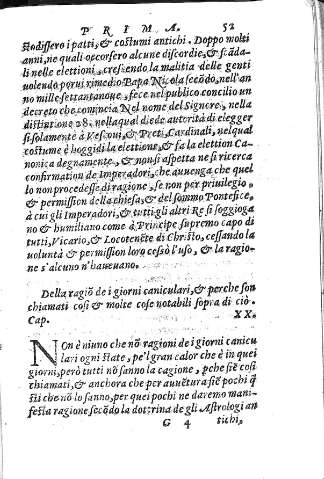 PRIMA. 52
stodissero i patti, & costumi antichi. Doppo molti
anni, ne quali occorsero alcune discordie, & scãda-
li nelle elettioni, crescendo la malitia delle genti
uolendo porui rimedio Papa Nicola secõdo, nell'an
no mille settantanoue, fece nel publico concilio un
decreto che comincia Nel nome del Signore, nella
distintione 28. nella qual diede autorità di elegger
si solamente à Vescoui, & Preti Cardinali, nel qual
costume è hoggidi la elettione, & fa la elettion Ca-
nonica degnamente, & non si aspetta ne si ricerca
confirmation de Imperadori, che auuenga che quel
lo non procedesse di ragione, se non per priuilegio,
& permission della chiesa, & del sommo Pontefice,
à cui gli Imperadori, & tutti gli altri Re si soggioga
no & humiliano come à Principe supremo capo di
tutti, Vicario, & Locotenẽte di Christo, cessando la
uoluntà & permission loro cessò l'uso, & la ragio-
ne s'alcuno n'haueuano.
Della ragiõ de i giorni caniculari, & perche son
chiamati cosi & molte cose notabili sopra di ciò.
Cap. XX.
NOn è niuno che nõ ragioni de i giorni canicu
lari ogni state, pe'l gran calor che è in quei
giorni, però tutti nõ sanno la cagione, ꝑche siẽ cosi
chiamati, & anchora che per auuẽtura siẽ pochi q̃
sti che nõ lo sanno, per quei pochi ne daremo mani-
festa ragione secõdo la dottrina de gli Astrologi an
G 4 tichi,